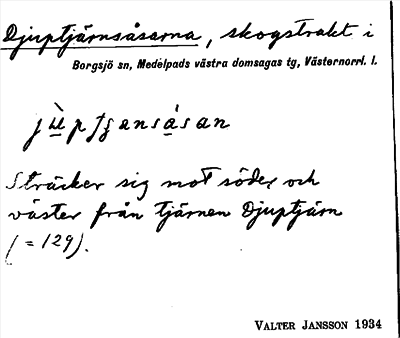 Djuptjärnsåsarna, skogstrakt i
Borgsjö sn, Medelpads västra domsagas tg, Västernorrl. l.
Sträcker sig mot söder och
väster från tjärnen Djuptjärn
(= 129).
VALTER JANSSON 1934